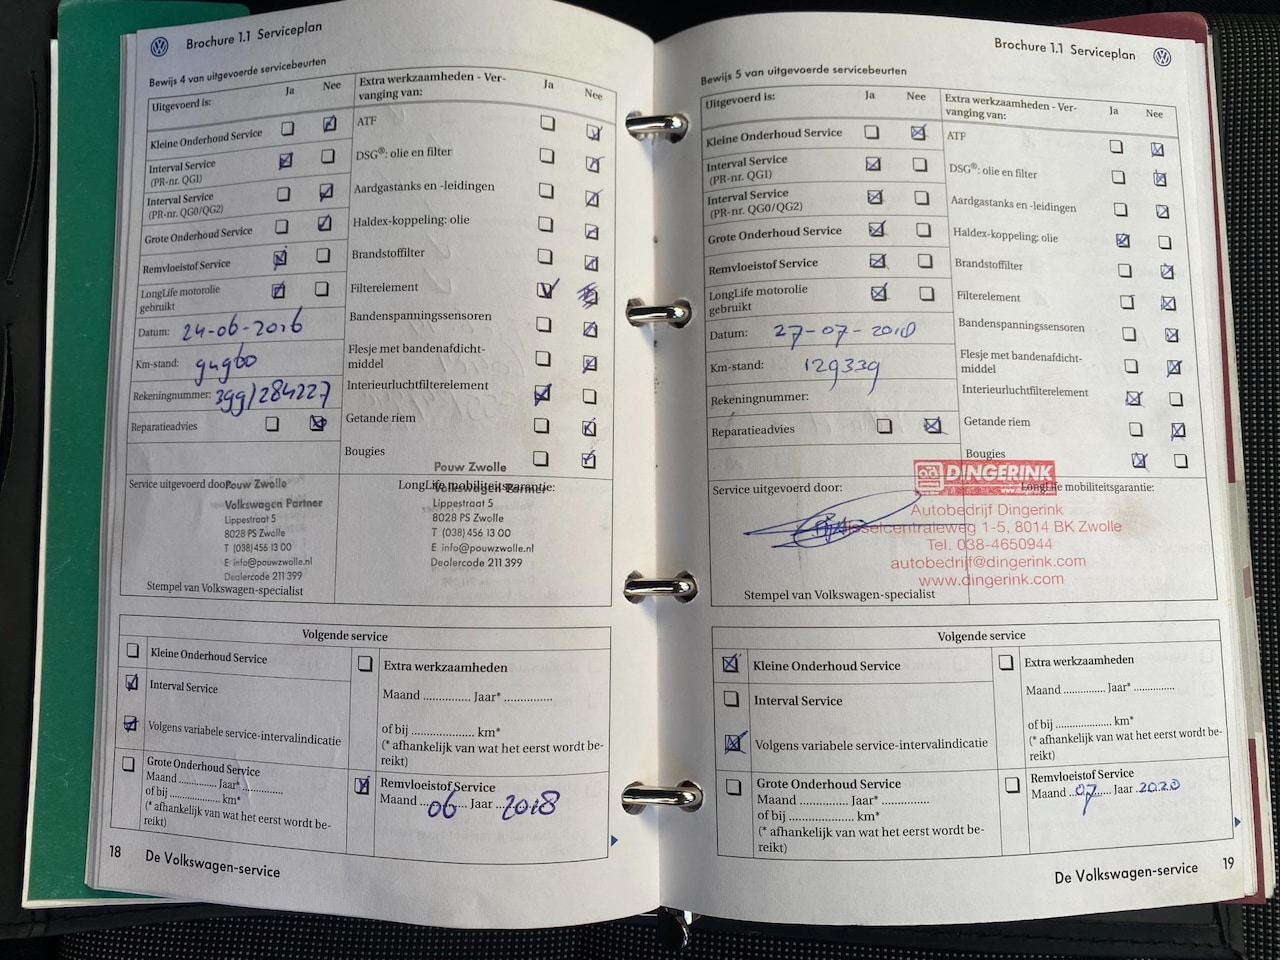 Brochure 1.1 Serviceplan
Bewijs 4 van uitgevoerde servicebeurten
Uitgevoerd is: Ja Nee
Kleine Onderhoud Service
Interval Service
(PR-nr. QG1)
Interval Service
(PR-nr. QG0/QG2)
Grote Onderhoud Service
Remvloeistof Service
LongLife motorolie
gebruikt
Datum: 24-06-2016
Km-stand:
Rekeningnummer: 399/284227
Reparatieadvies
Extra werkzaamheden - Ver-
vanging van: Ja Nee
ATF
DSG®: olie en filter
Aardgastanks en -leidingen
Haldex-koppeling: olie
Brandstoffilter
Filterelement
Bandenspanningssensoren
Flesje met bandenafdicht-
middel
Interieurluchtfilterelement
Getande riem
Bougies
Service uitgevoerd door:
Pouw Zwolle
Volkswagen Partner
Lippestraat 5
8028 PS Zwolle
T (038) 456 13 00
E info@pouwzwolle.nl
Dealercode 211 399
Stempel van Volkswagen-specialist
LongLife mobiliteitsgarantie:
Pouw Zwolle
Volkswagen Partner
Lippestraat 5
8028 PS Zwolle
T (038) 456 13 00
E info@pouwzwolle.nl
Dealercode 211 399
Volgende service
Kleine Onderhoud Service
Interval Service
Volgens variabele service-intervalindicatie
Grote Onderhoud Service
Maand ............ Jaar* ............
of bij .................... km*
(* afhankelijk van wat het eerst wordt be-
reikt)
Extra werkzaamheden
Maand ............ Jaar* ............
of bij .................... km*
(* afhankelijk van wat het eerst wordt be-
reikt)
Remvloeistof Service
Maand 06 Jaar 2018
18 De Volkswagen-service
Brochure 1.1 Serviceplan
Bewijs 5 van uitgevoerde servicebeurten
Uitgevoerd is: Ja Nee
Kleine Onderhoud Service
Interval Service
(PR-nr. QG1)
Interval Service
(PR-nr. QG0/QG2)
Grote Onderhoud Service
Remvloeistof Service
LongLife motorolie
gebruikt
Datum: 27-07-2018
Km-stand: 129339
Rekeningnummer:
Reparatieadvies
Extra werkzaamheden - Ver-
vanging van: Ja Nee
ATF
DSG®: olie en filter
Aardgastanks en -leidingen
Haldex-koppeling: olie
Brandstoffilter
Filterelement
Bandenspanningssensoren
Flesje met bandenafdicht-
middel
Interieurluchtfilterelement
Getande riem
Bougies
Service uitgevoerd door:
Stempel van Volkswagen-specialist
LongLife mobiliteitsgarantie:
DINGERINK
Autobedrijf Dingerink
1-5, 8014 BK Zwolle
Tel. 038-4650944
autobedrijf@dingerink.com
www.dingerink.com
Volgende service
Kleine Onderhoud Service
Interval Service
Volgens variabele service-intervalindicatie
Grote Onderhoud Service
Maand ............ Jaar* ............
of bij .................... km*
(* afhankelijk van wat het eerst wordt be-
reikt)
Extra werkzaamheden
Maand ............ Jaar* ............
of bij .................... km*
(* afhankelijk van wat het eerst wordt be-
reikt)
Remvloeistof Service
Maand 07 Jaar 2020
De Volkswagen-service 19